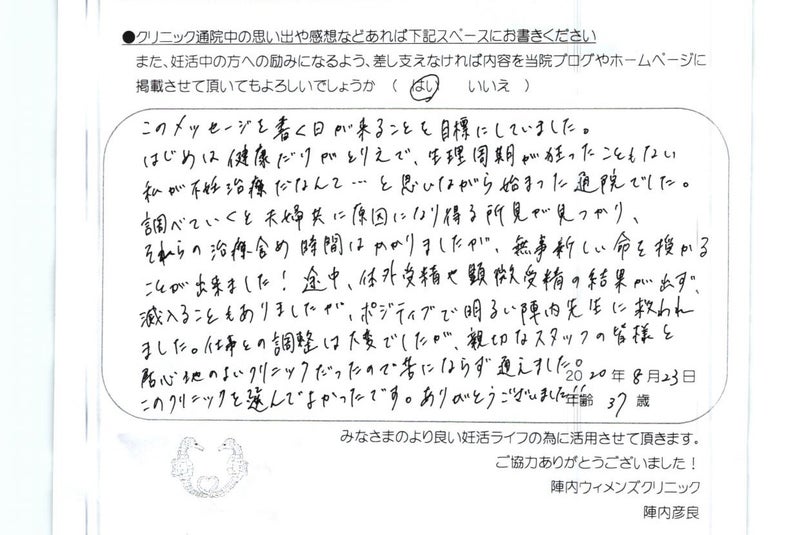 ●クリニック通院中の思い出や感想などあれば下記スペースにお書きください
また、妊活中の方への励みになるよう、差し支えなければ内容を当院ブログやホームページに
掲載させて頂いてもよろしいでしょうか （ はい　いいえ ）
このメッセージを書く日が来ることを目標にしていました。
はじめは健康だけがとりえで、生理周期が狂ったこともない
私が不妊治療だなんて…と思いながら始まった通院でした。
調べていくと夫婦共に原因になり得る所見が見つかり、
それらの治療含め時間はかかりましたが、無事新しい命を授かる
ことが出来ました！途中、体外受精や顕微受精の結果が出ず、
滅入ることもありましたが、ポジティブで明るい陣内先生に救われ
ました。仕事との調整は大変でしたが、親切なスタッフの皆様と
居心地のよいクリニックだったので苦にならず通えました。
2020年8月23日
このクリニックを選んでよかったです。ありがとうございました!!
年齢 37 歳
みなさまのより良い妊活ライフの為に活用させて頂きます。
ご協力ありがとうございました！
陣内ウィメンズクリニック
陣内彦良